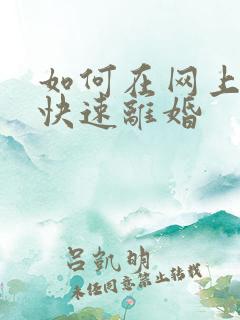 如何在网上
快速離婚
吕凱明
未经同意禁止转载